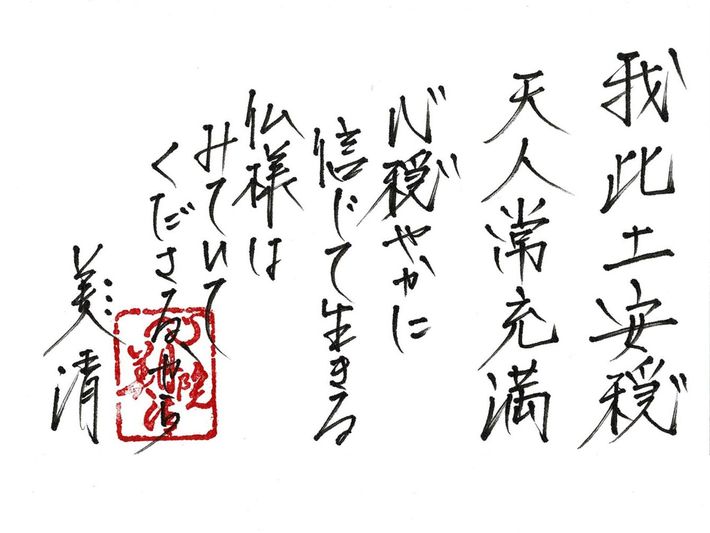 我此土安穏
天人常充満
心穏やかに
信じて生きる
仏様は
みていて
くださるから
美清
院
美清